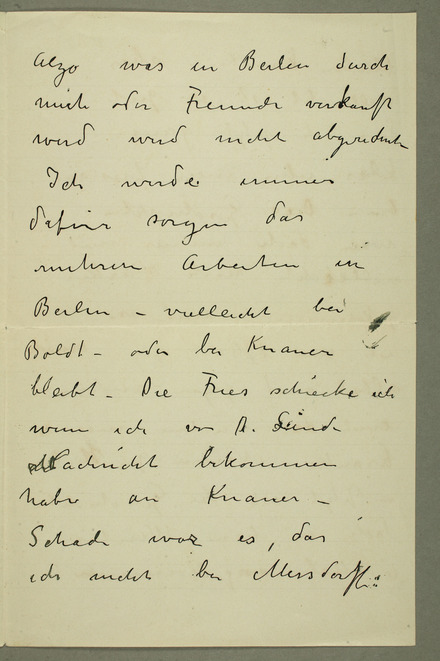 Alzo was in Berlin durch
mich oder Freunde verkauft
werd werd nicht abgerechnet
Ich werde immer
dafür sorgen das
mehrere Arbeiten in
Berlin – vielleicht bei
Boldt – oder bei Knauer
bleibt – Die Fries schicke ich
wenn ich von A. Linde
Nachricht bekommen
habe an Knauer –
Schade war es, das
ich nicht bei